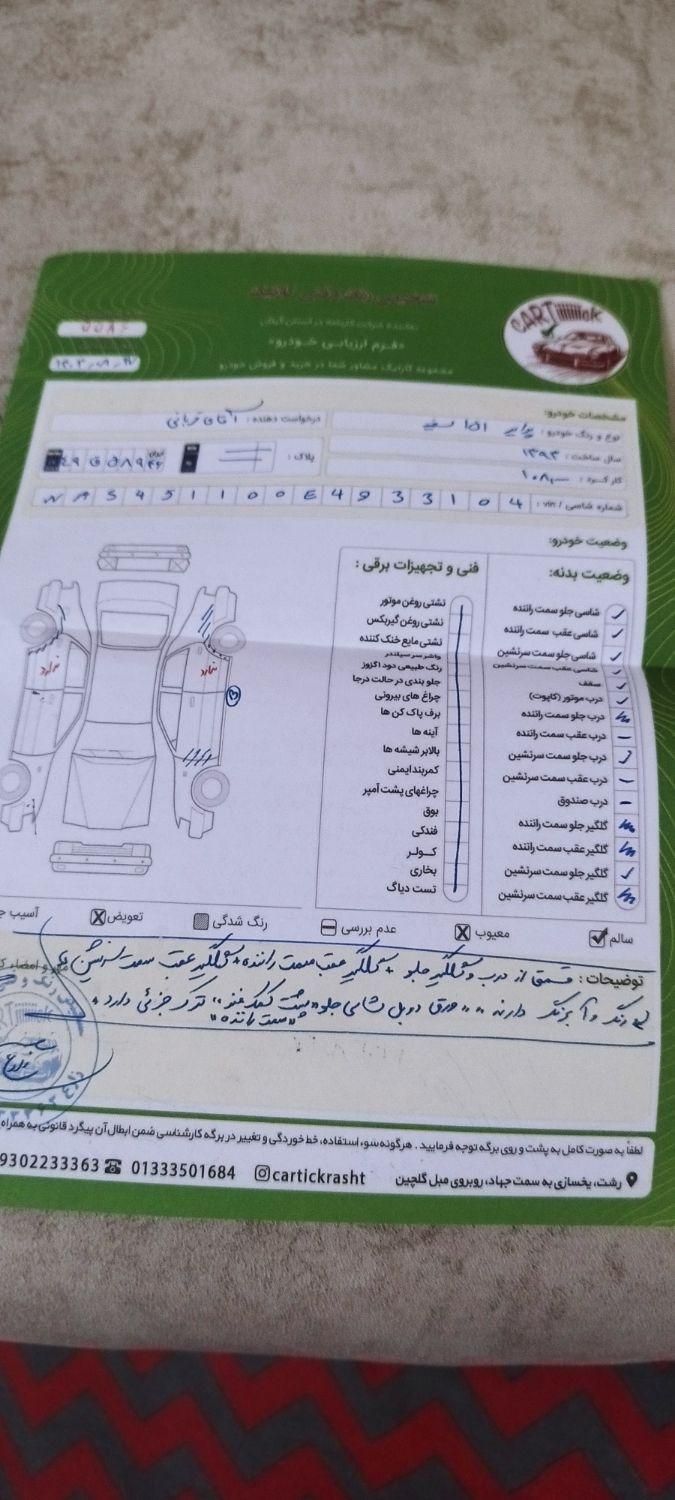 CARTiiiiiiioK
تشخیص رنگ و فنی کارتیک
نماینده شرکت کارنامه در استان گیلان
«فرم ارزیابی خودرو»
مجموعه کارتیک مشاور شما در خرید و فروش خودرو
مشخصات خودرو:
نوع و رنگ خودرو : پراید ۱۵۱ سفید
درخواست دهنده : آقای قربانی
سال ساخت : ۱۳۹۳
پلاک :
ایران
کارکرد :
شماره شاسی / vin : N A S 4 5 1 1 0 0 E 4 9 3 3 1 0 4
وضعیت خودرو:
وضعیت بدنه:
شاسی جلو سمت راننده
شاسی عقب سمت راننده
شاسی جلو سمت سرنشین
شاسی عقب سمت سرنشین
سقف
درب موتور (کاپوت)
درب جلو سمت راننده
درب عقب سمت راننده
درب جلو سمت سرنشین
درب عقب سمت سرنشین
درب صندوق
گلگیر جلو سمت راننده
گلگیر عقب سمت راننده
گلگیر جلو سمت سرنشین
گلگیر عقب سمت سرنشین
فنی و تجهیزات برقی :
نشتی روغن موتور
نشتی روغن گیربکس
نشتی مایع خنک کننده
واشر سر سیلندر
رنگ طبیعی دود اگزوز
جلو بندی در حالت درجا
چراغ های بیرونی
برف پاک کن ها
آینه ها
بالابر شیشه ها
کمربند ایمنی
چراغهای پشت آمپر
بوق
فندکی
کولر
بخاری
تست دیاگ
ندارد
ندارد
سالم
معیوب
عدم بررسی
رنگ شدگی
تعویض
آسیب
توضیحات : قسمتی از درب و گلگیر جلو + گلگیر عقب سمت راننده + گلگیر عقب سمت سرنشین
رنگ و آبرنگ دارند ،، ورق دوبل شاسی جلو «پشت کمک فنر» ترک جزئی دارد .
«سمت راننده»
لطفا به صورت کامل به پشت و روی برگه توجه فرمایید . هرگونه سو، استفاده، خط خوردگی و تغییر در برگه کارشناسی ضمن ابطال آن پیگرد قانونی به همراه
رشت، یخسازی به سمت جهاد، روبروی مبل گلچین
cartickrasht
01333501684
9302233363